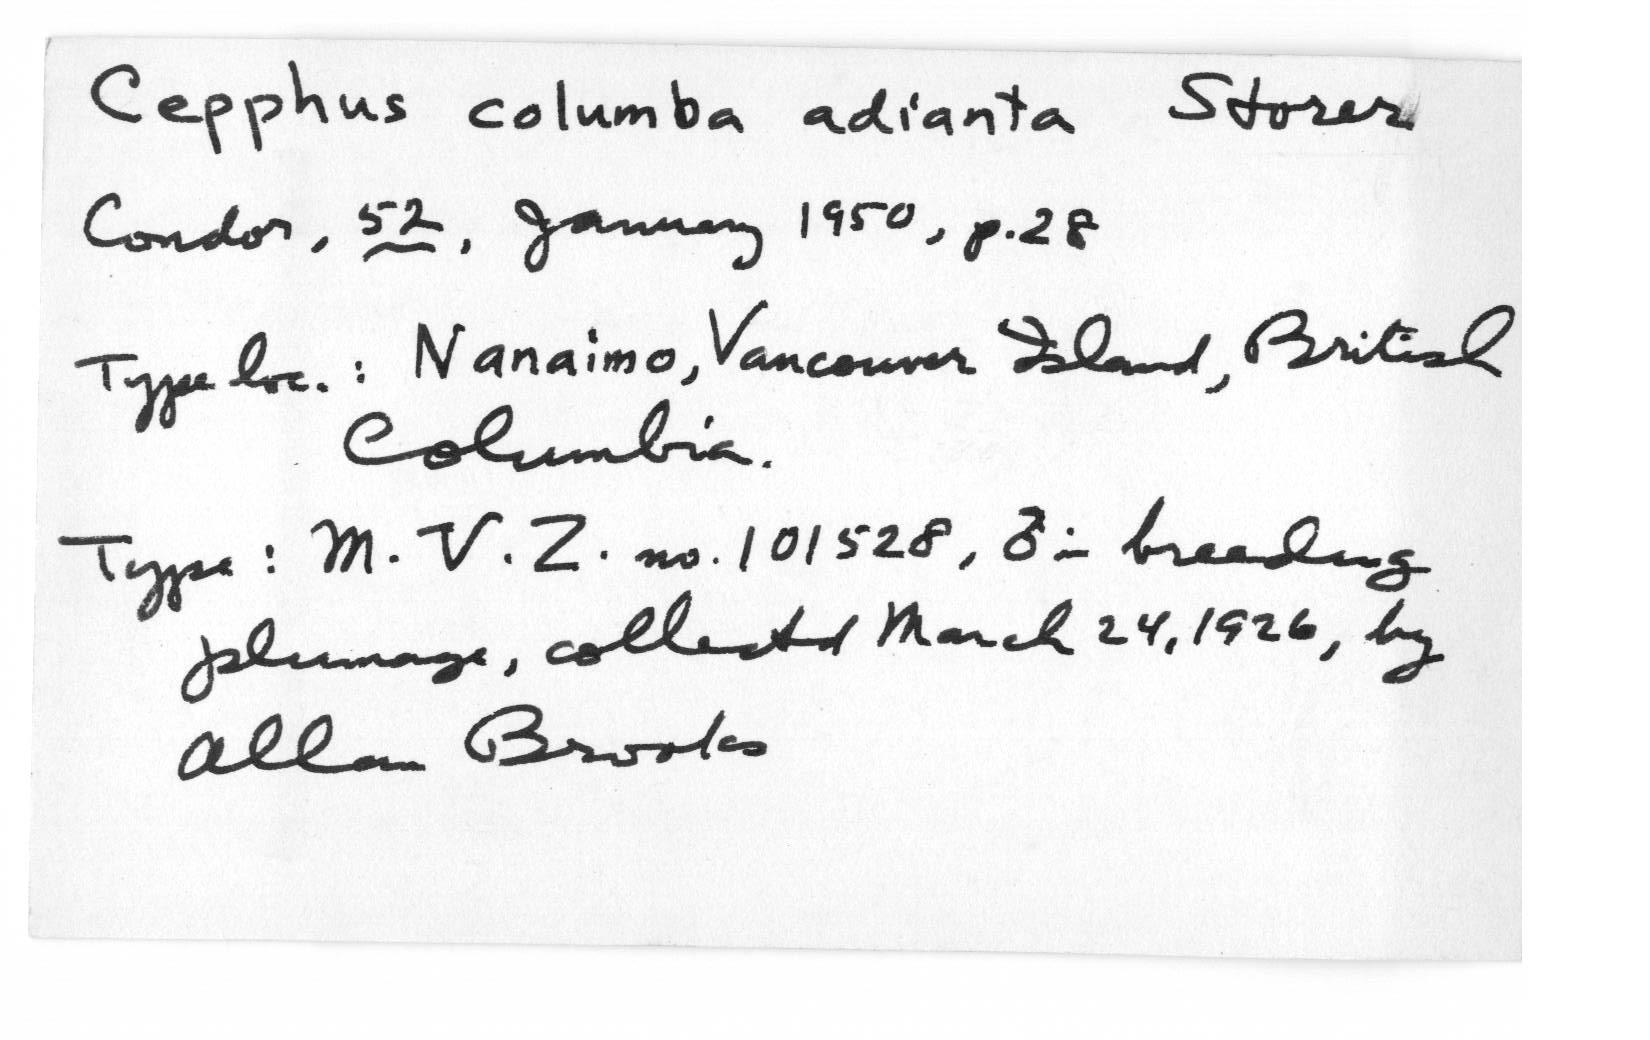 Cepphus columba adianta Storer
Condor, 52, January 1950, p.28
Type loc. : Nanaimo, Vancouver Island, British
Columbia.
Type : M. V. Z. no. 101528, ♂ in breeding
plumage, collected March 24, 1926, by
Allan Brooks